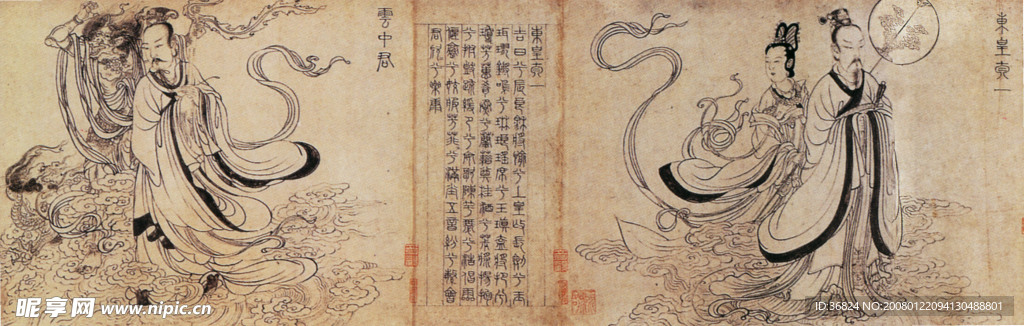 東皇太一
東皇太一
吉日兮辰良穆將愉兮上皇撫長劍兮玉
珥璆鏘鳴兮琳琅瑤席兮玉瑱盍將把兮
瓊芳蕙肴蒸兮蘭藉奠桂酒兮椒漿揚枹
兮拊鼓疏緩節兮安歌陳竽瑟兮浩倡靈
偃蹇兮姣服芳菲菲兮滿堂五音紛兮繁會
君欣欣兮樂康
雲中君
昵享网 www.nipic.cn
ID:36824 NO:20080122094130488801